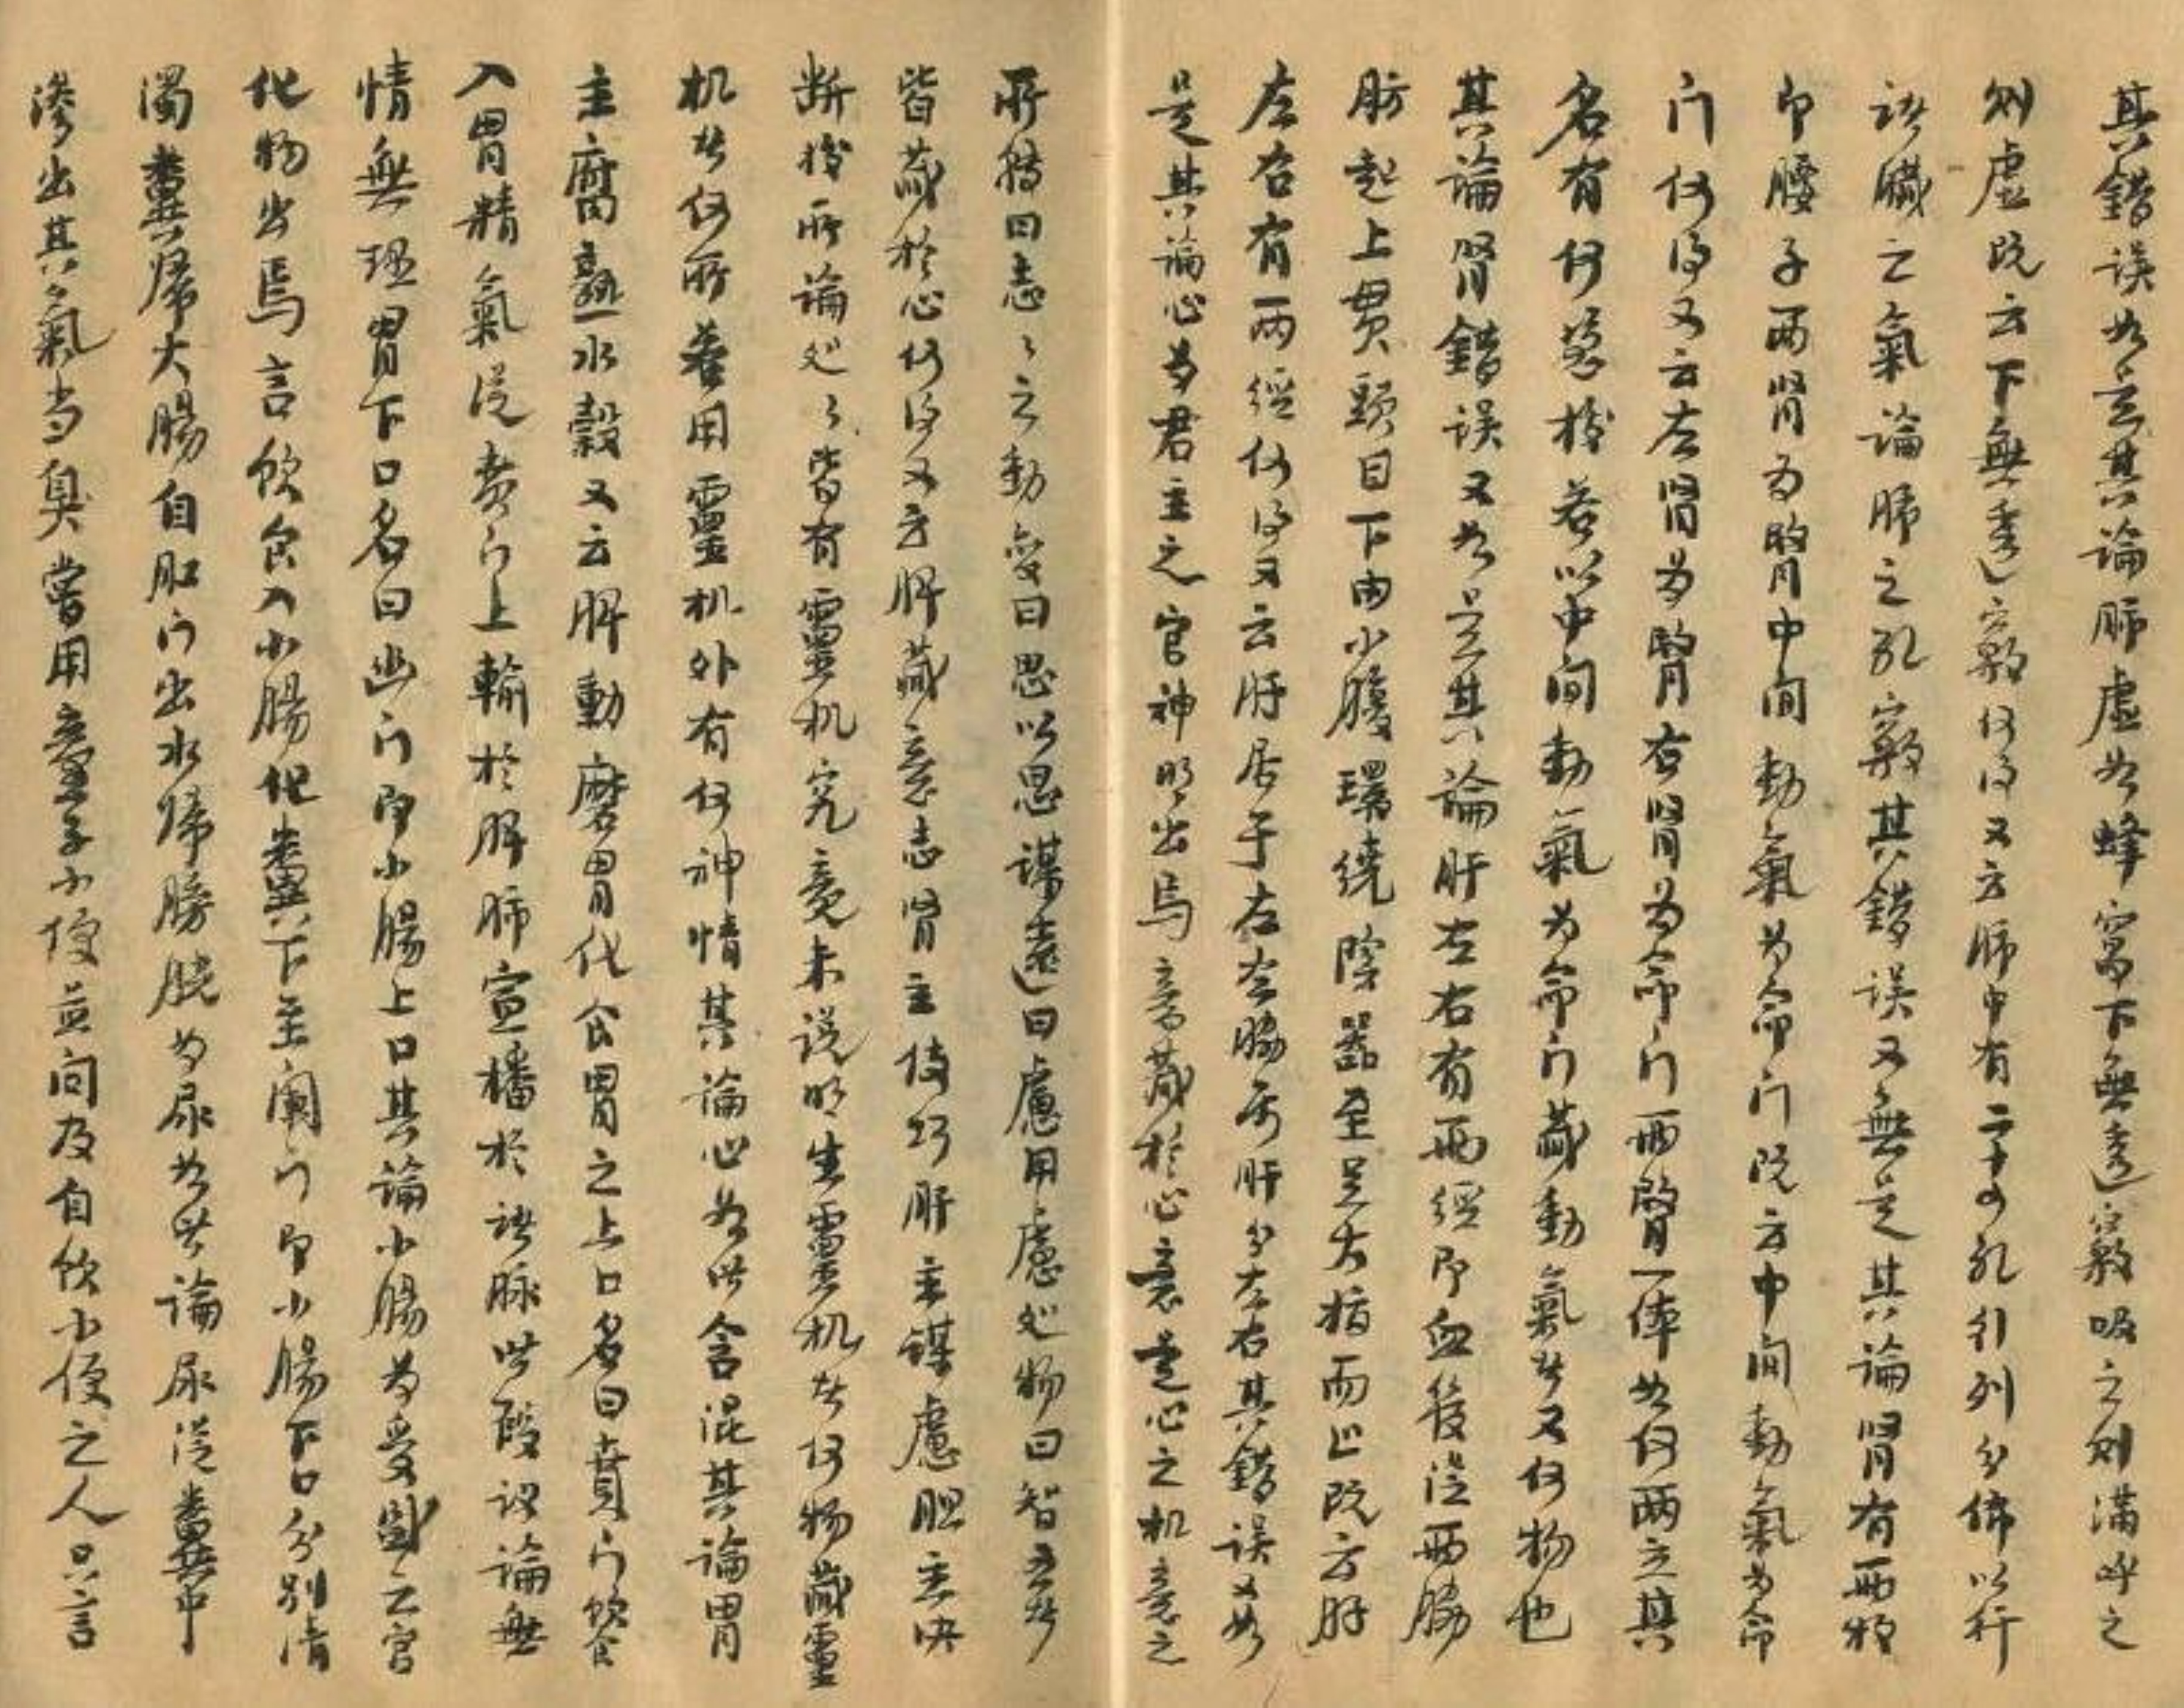 其錯誤如是其論肺虛如蜂窩下無透竅吸之則滿呼之
則虛既云下無透竅何得又云肺中有二十四孔行列分佈以行
諸臟之氣論肺之孔竅其錯誤又如是其論腎有兩枚
即腰子兩腎為腎中間動氣為命門既云中間動氣為命
門何得又云左腎為腎右腎為命門兩腎一体如何兩立其
名有何憑据若以中间動氣為命門藏動氣者又何物也
其論腎錯誤又如是其論肝左右有兩經即血管從兩脇
肋起上贯頭目下由小腹環繞陰器至足大指而止既云肝
左右有兩經何得又云肝居于左左脇屬肝分左右其錯誤又如
是其論心為君主之官神明出焉意藏於心意是心之机意之
所專曰志志之動变曰思以思謀遠曰慮用慮处物曰智五者
皆藏於心何得又云脾藏意志腎主伎巧肝主謀慮胆主决
断据所論处处皆有靈机究竟未说明生靈机者何物藏靈
机者何所若用靈机外有何神情其論心如此含混其論胃
主腐熟水穀又云脾動磨胃化食胃之上口名曰賁门飲食
入胃精氣從賁门上輸於脾肺宣播於诸脉此段议論無
情無理胃下口名曰幽门即小腸上口其論小腸為受盛之官
化物出焉言飲食入小腸化糞下至闌门即小腸下口分别清
濁糞歸大腸自肛门出水歸膀胱為尿如此論尿從糞中
滲出其氣当臭嘗用童子小便並问及自饮小便之人只言